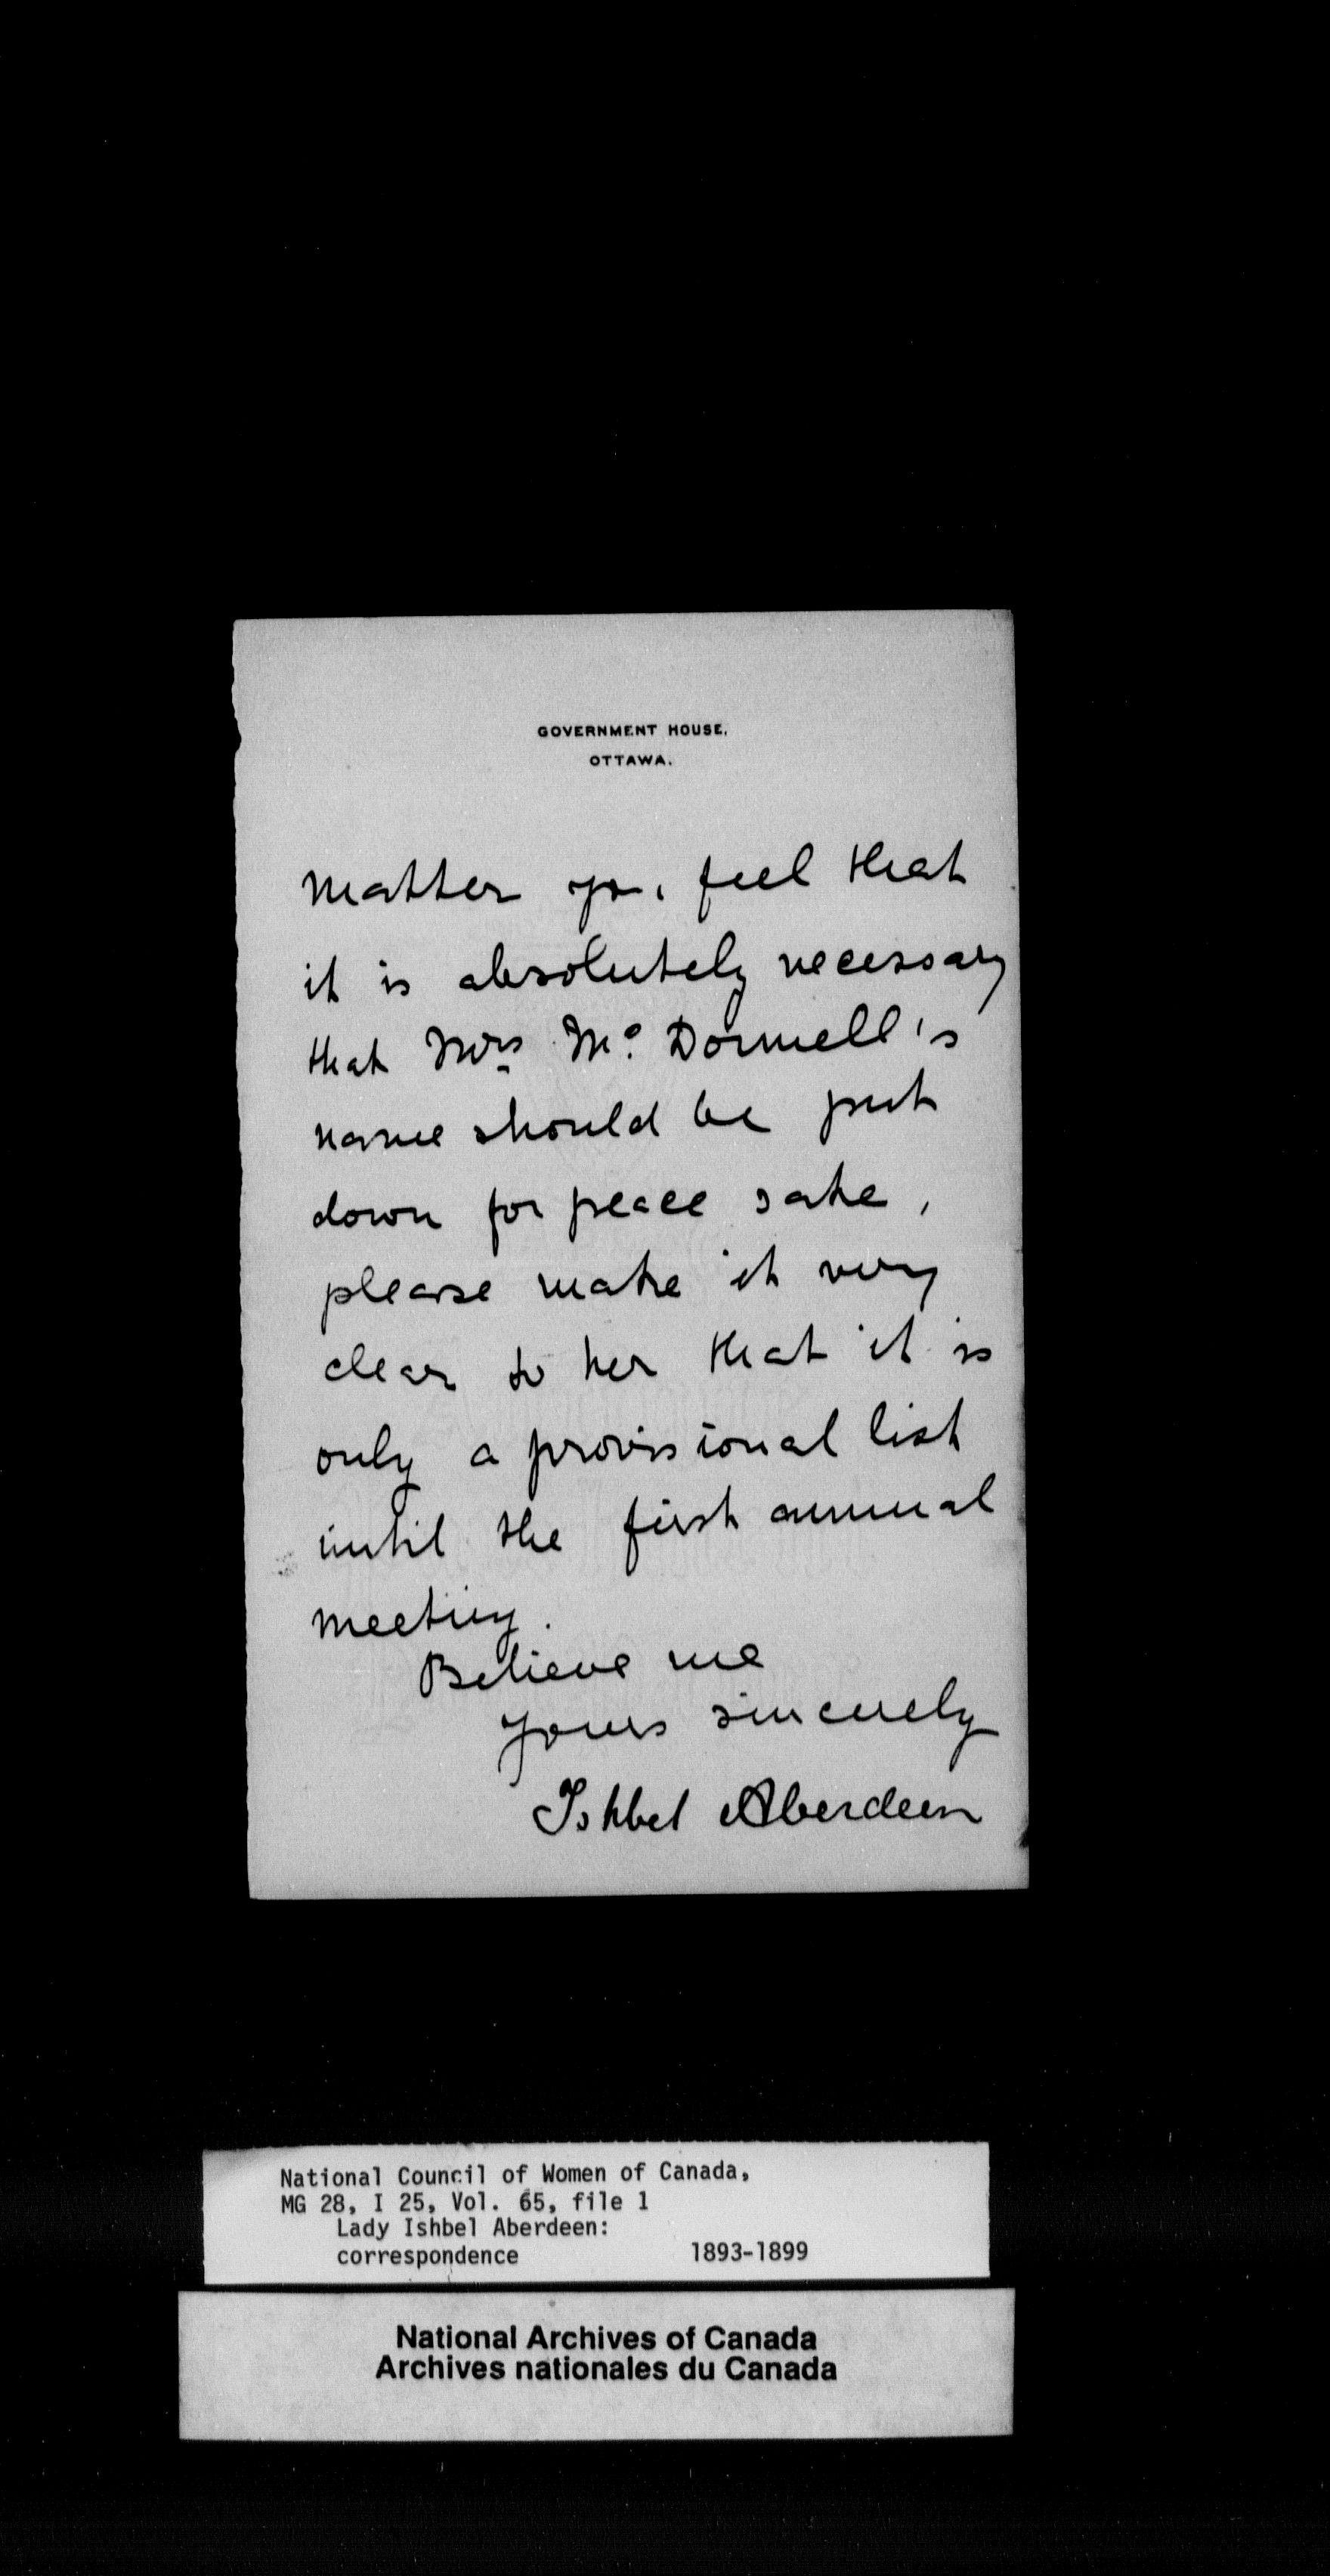 GOVERNMENT HOUSE,
OTTAWA.
matter you feel that
it is absolutely necessary
that Mrs Mc Donnell's
name should be put
down for peace sake,
please make it very
clear to her that it is
only a provisional list
until the first annual
meeting.
Believe me
yours sincerely
Ishbel Aberdeen
National Council of Women of Canada,
MG 28, I 25, Vol. 65, file 1
Lady Ishbel Aberdeen:
correspondence 1893-1899
National Archives of Canada
Archives nationales du Canada